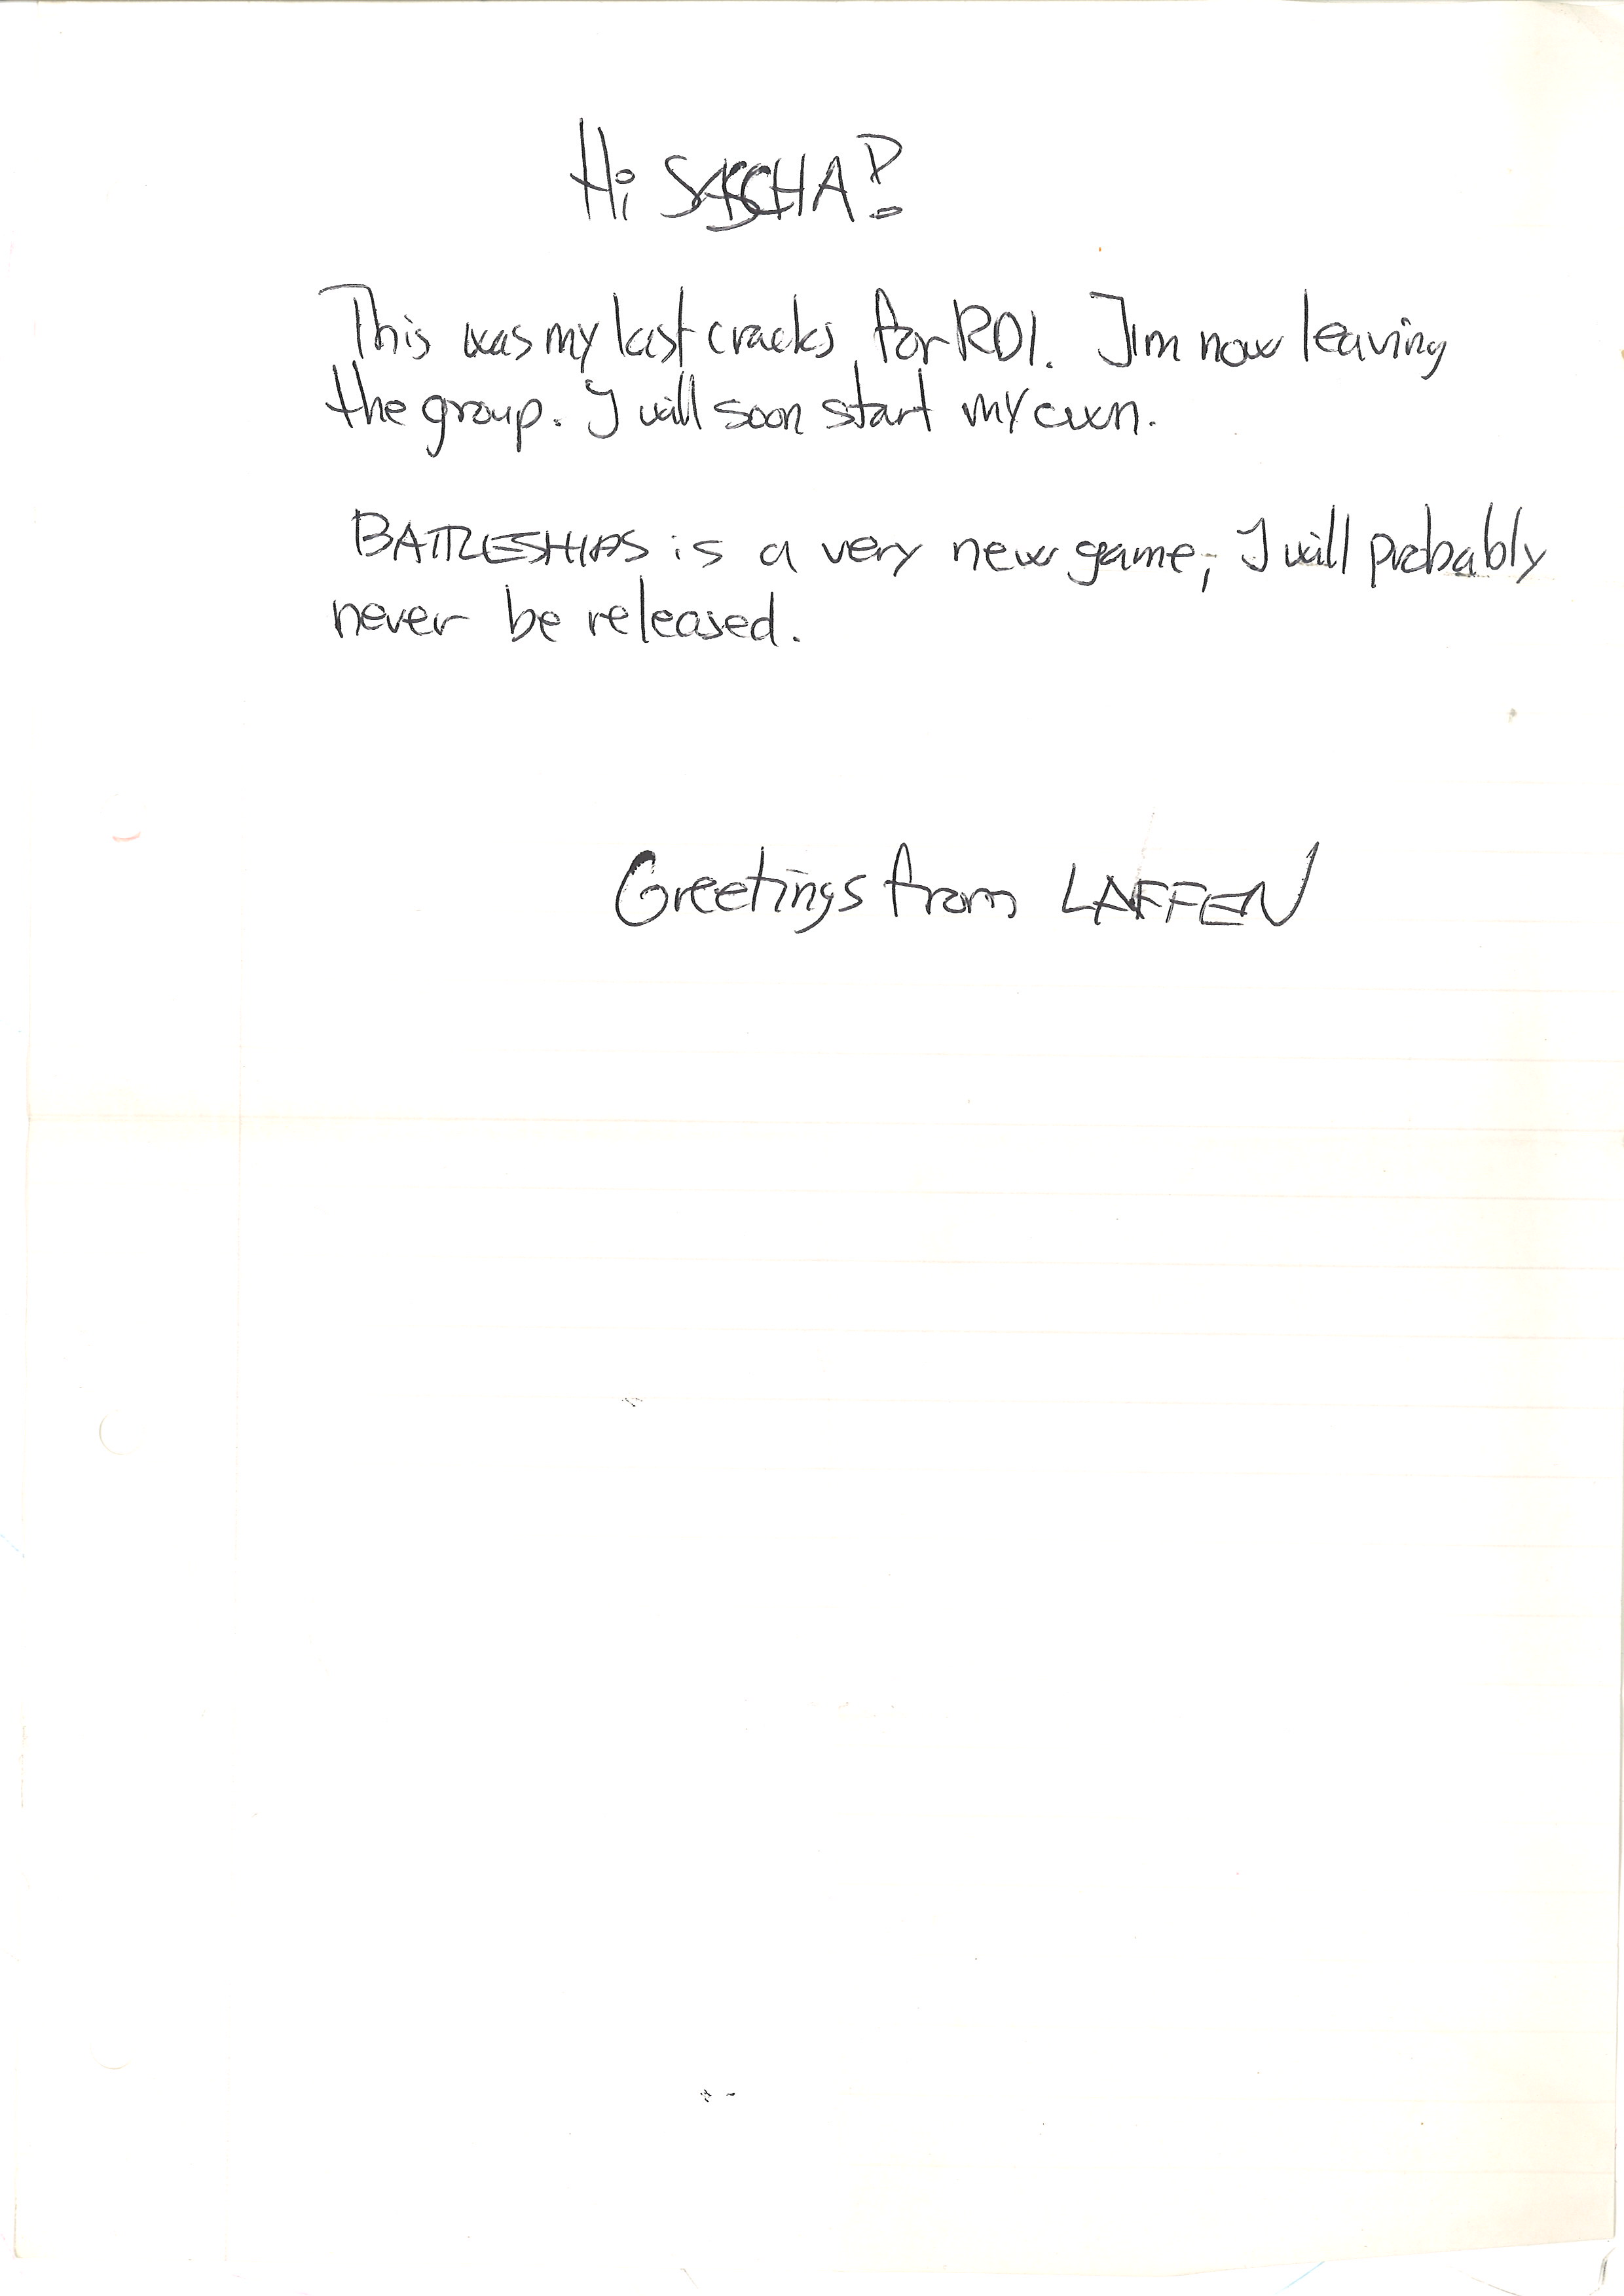 Hi SASCHA!
This was my last cracks for RDI. I'm now leaving
the group. I will soon start my own.
BATTLESHIPS is a very new game, I will probably
never be released.
Greetings from LAFFEN